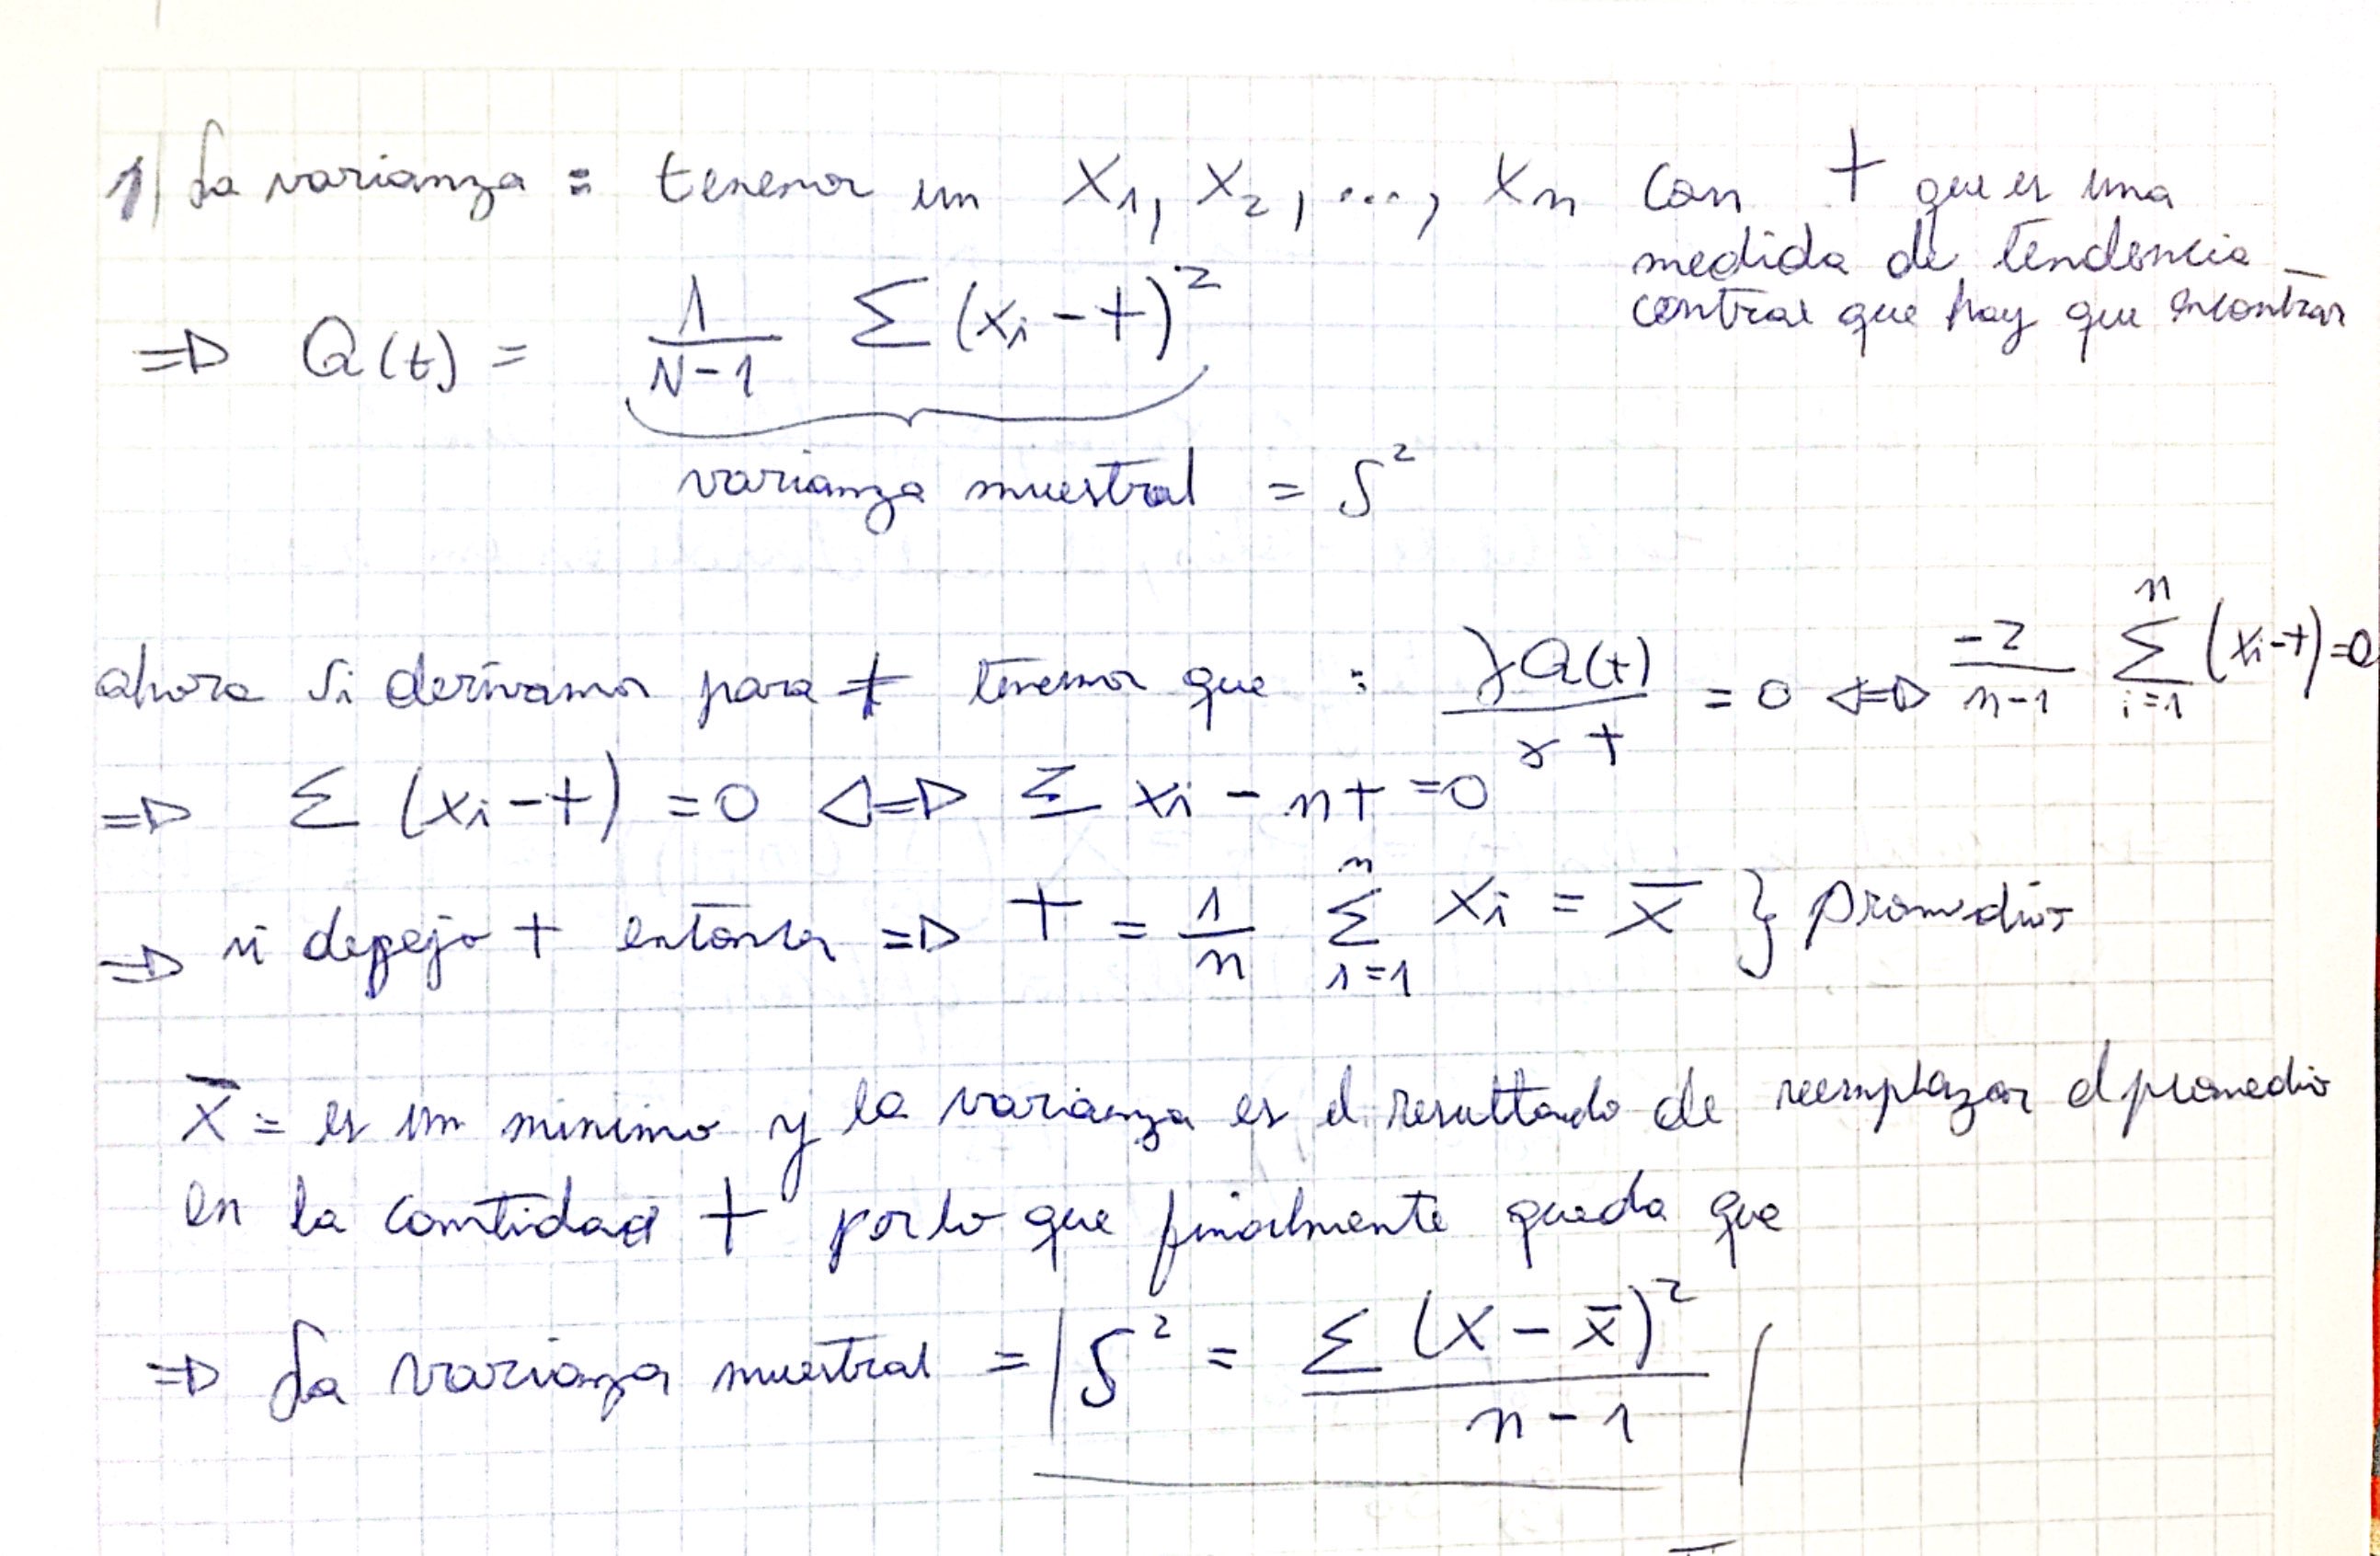 1) La varianza = tenemos un X₁, X₂, ..., Xn con t que es una
medida de tendencia
central que hay que encontrar
=> Q(t) = 1/(N-1) Σ (xi - t)²
varianza muestral = S²
ahora si derivamos para t tenemos que : ∂Q(t)/∂t = 0 <=> -2/(n-1) Σ_{i=1}^{n} (xi - t) = 0
=> Σ (xi - t) = 0 <=> Σ xi - nt = 0
=> si depejo t entonces => t = 1/n Σ_{i=1}^{n} xi = x̄ } promedios
x̄ = es un minimo y la varianza es el resultado de reemplazar el promedio
en la cantidad t por lo que finalmente queda que
=> La varianza muestral = | S² = Σ (x - x̄)² / (n-1) |